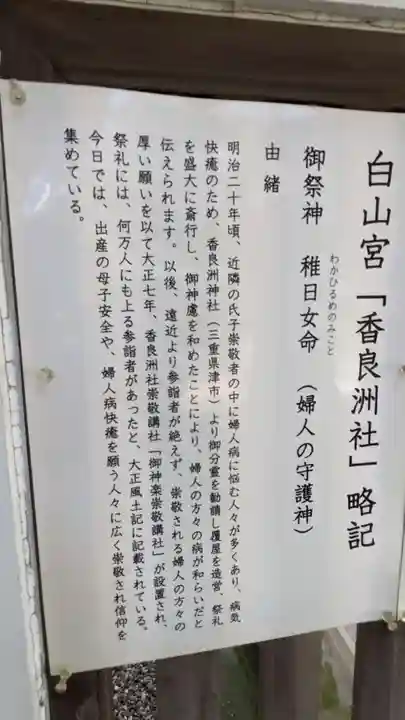 白山宮「香良洲社」略記
御祭神　稚日女命　（婦人の守護神）
わかひるめのみこと
由緒
明治二十年頃、近隣の氏子崇敬者の中に婦人病に悩む人々が多くあり、病気
快癒のため、香良洲神社（三重県津市）より御分霊を勧請し履屋を造営、祭礼
を盛大に斎行し、御神慮を和めたことにより、婦人の方々の病が和らいだと
伝えられます。以後、遠近より参詣者が絶えず、崇敬される婦人の方々の
厚い願いを以て大正七年、香良洲社崇敬講社「御神楽崇敬講社」が設置され、
祭礼には、何万人にも上る参詣者があったと、大正風土記に記載されている。
今日では、出産の母子安全や、婦人病快癒を願う人々に広く崇敬され信仰を
集めている。